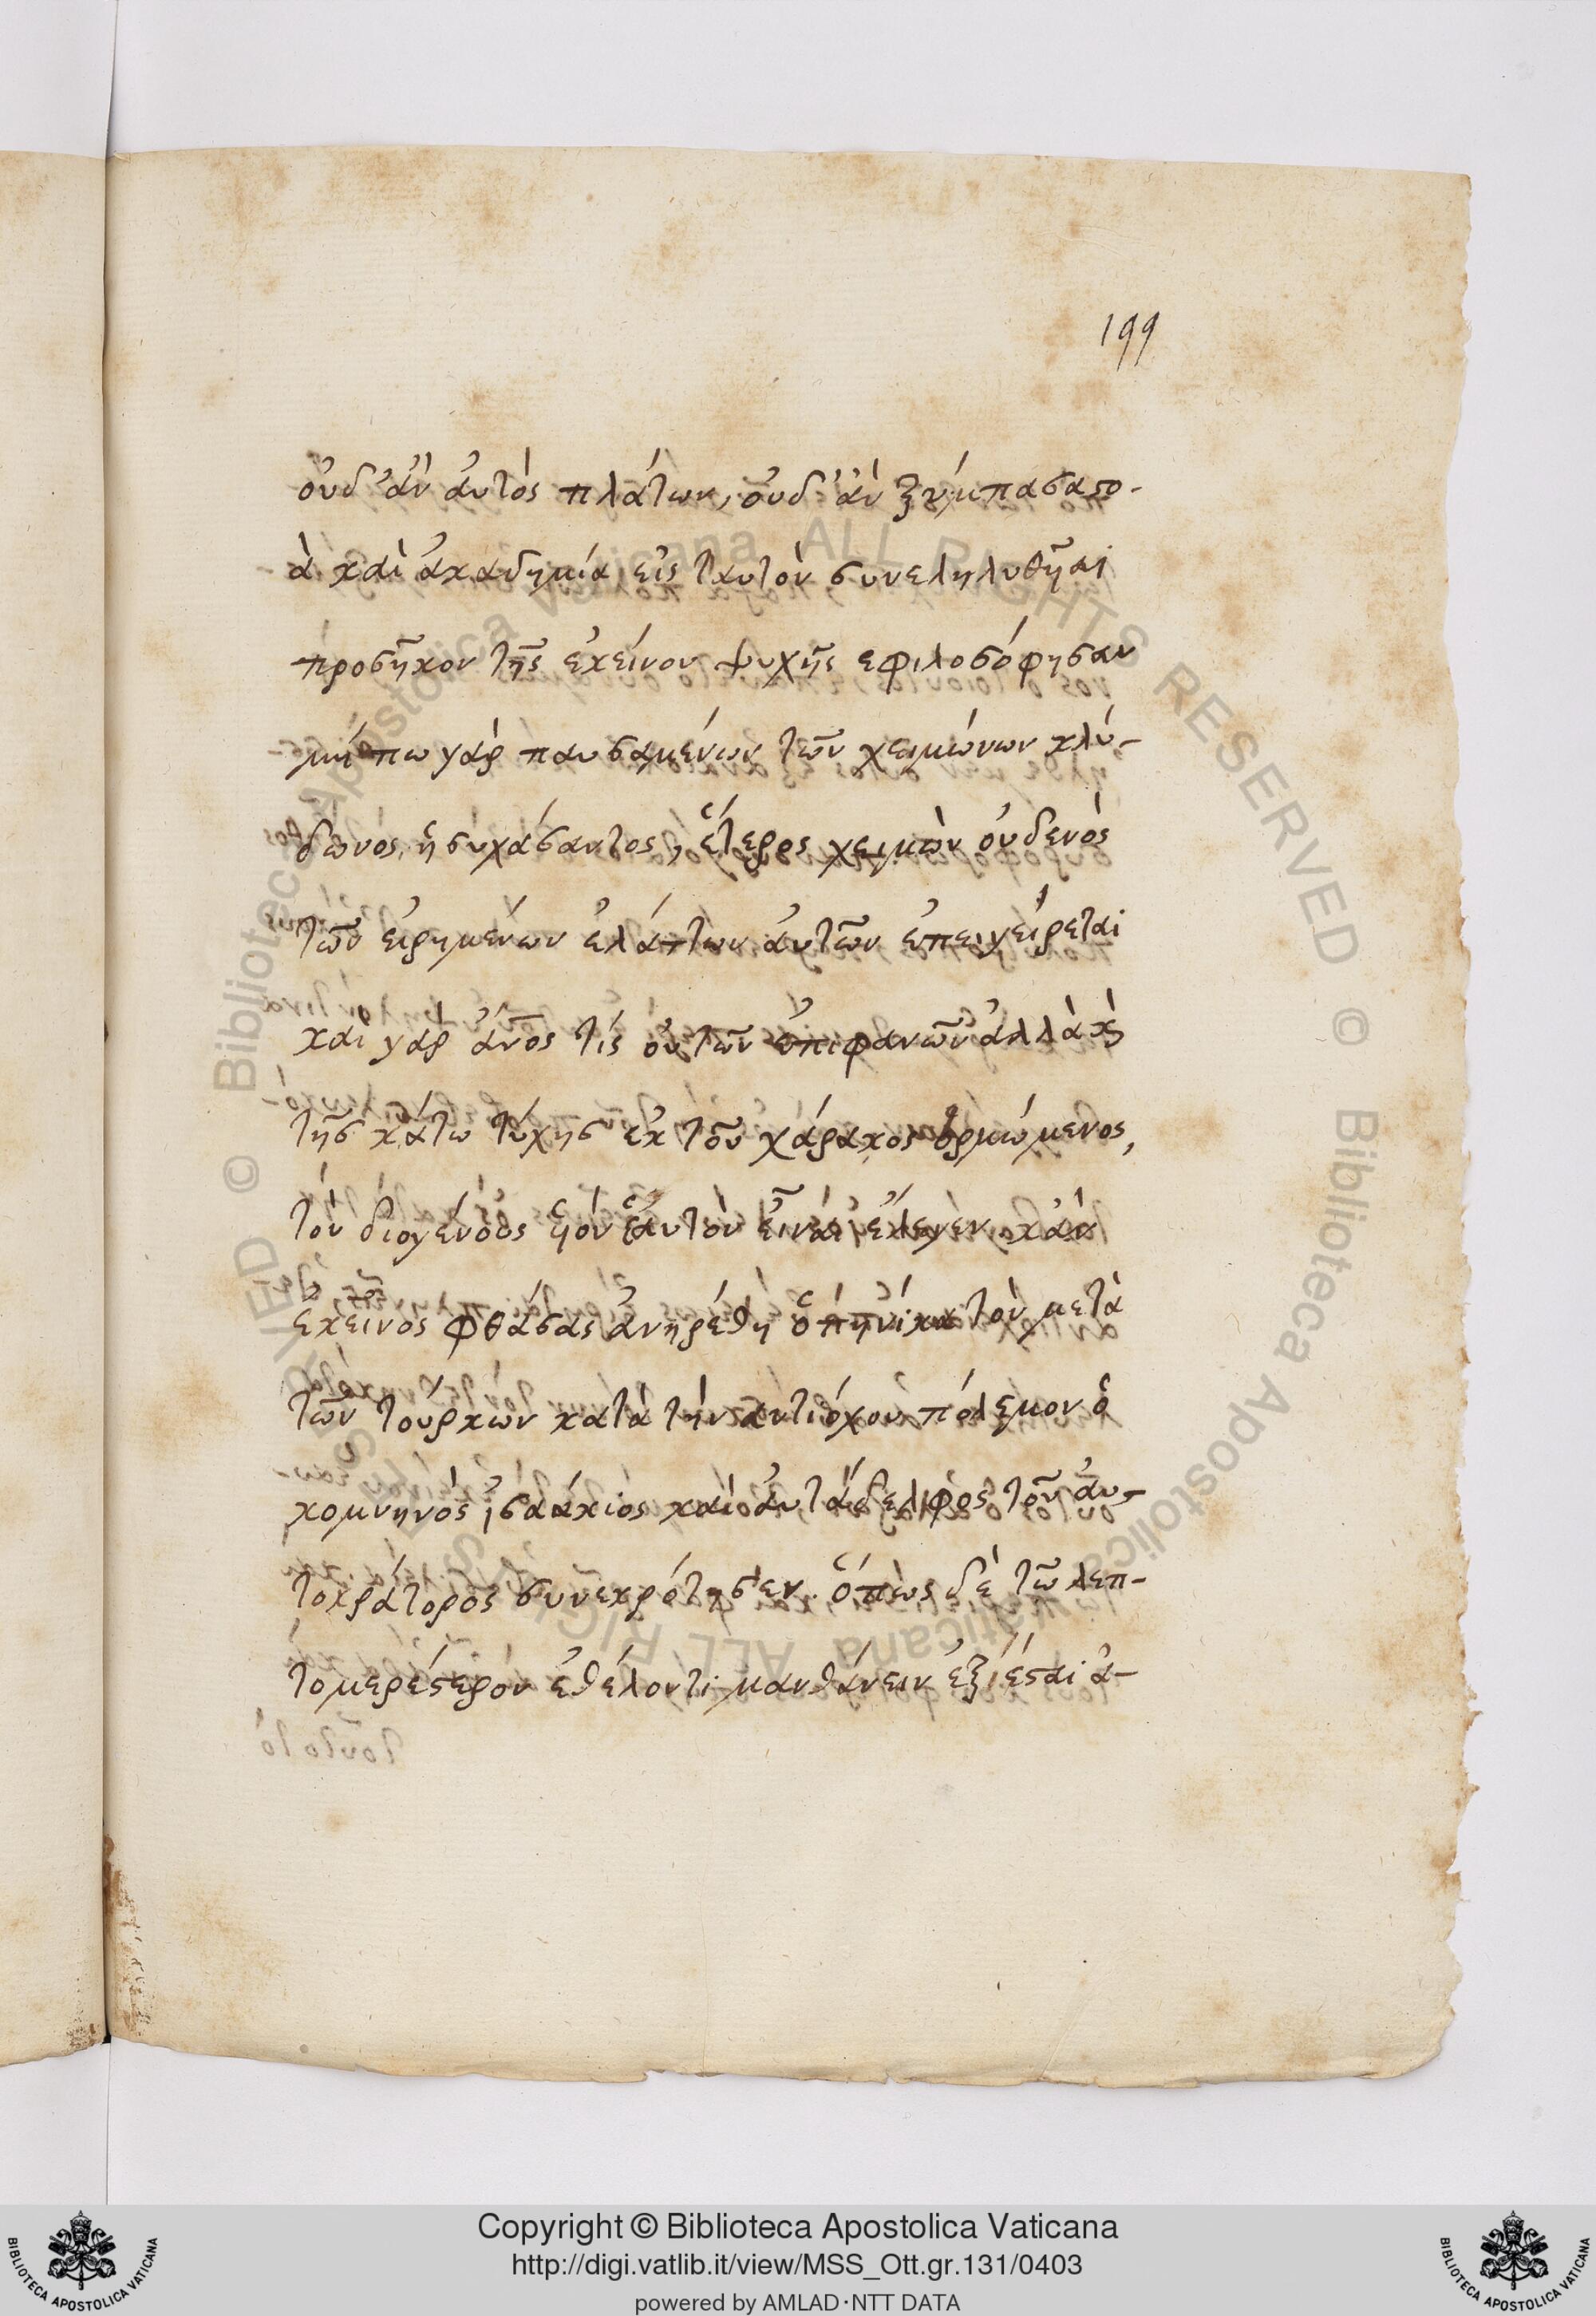 199
οὐδ' ἂν ἀυτὸς πλάτων, οὐδ' ἂν ξύμπασα στο-
ὰ καὶ ἀκαδημία εἰς ταυτὸν συνεληλυθῆαι
προσῆκον τῆς ἐκείνου ψυχῆς εφιλοσόφησαν
μήπω γὰρ παυσαμένων τῶν χειμώνων κλύ-
δωνος ἡσυχάσαντος, ἕτερος χειμὼν οὐδενὸς
τῶν ἐιρημένων ἐλάττων ἀυτῶν ἐπεγείρεται
καὶ γὰρ ἄνος τὶς οὐ τῶν ἐπιφανῶν ἀλλὰ κὶ
τῆσ κάτω τύχησ ἐκ τοῦ χάρακος ὁρμώμενος,
τὸν διογένους ὑιὸν ἑαυτὸν εἶναι ἔλεγεν κἂν
ἐκεῖνος φθάσας ἀνηρέθη ὁπηνίκα τὸν μετὰ
τῶν τούρκων κατὰ τὴν αντιόχου πόλεμον ὁ
κομνηνὸς ἰσαάκιος καὶ ἀυτάδελφος τοῦ ἀυ-
τοκράτορος συνεκρότησεν. ὅπως δὲ τῶ λεπ-
τομερέστερον ἐθέλοντι μανθάνειν ἐξιέσται ἀ-
Copyright © Biblioteca Apostolica Vaticana
http://digi.vatlib.it/view/MSS_Ott.gr.131/0403
powered by AMLAD·NTT DATA